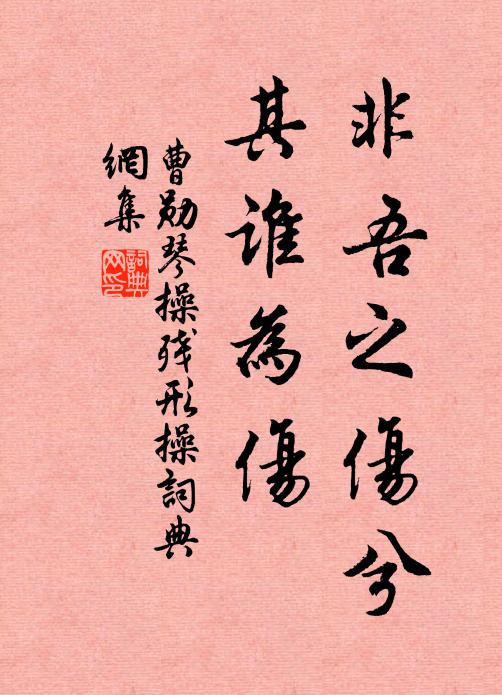 非吾之傷兮
其誰為傷
曹勛琴操殘形操詞典
網集
詞典
网印